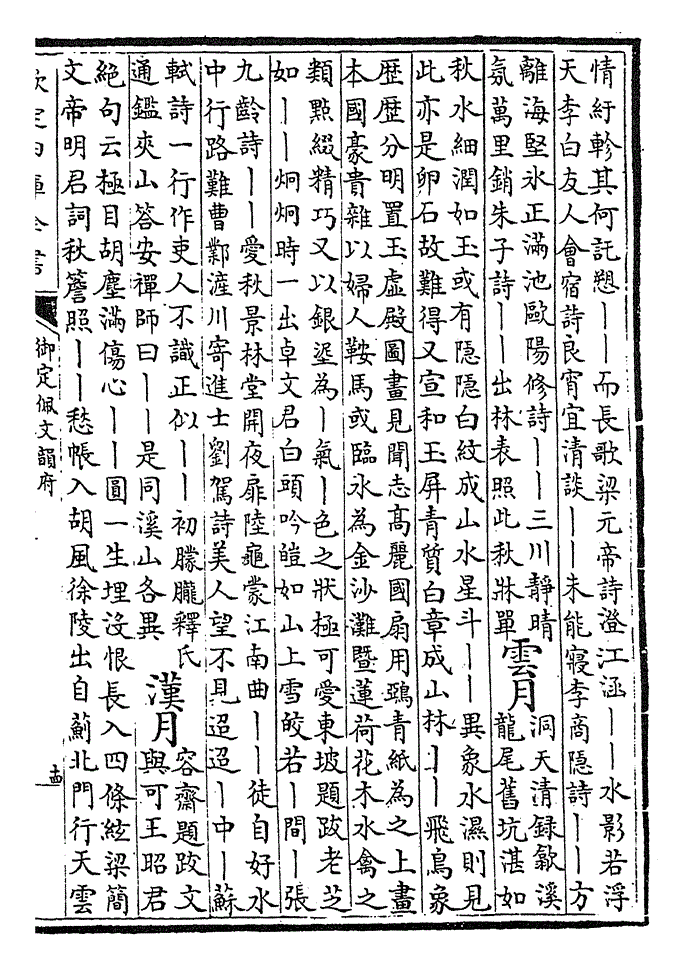 情紆軫其何託愬丨丨而長歌梁元帝詩澄江涵丨丨水影若浮
天李白友人會宿詩良宵宜清談丨丨未能寢李商隱詩丨丨方
離海堅氷正滿池歐陽修詩丨丨三川靜晴
氛萬里銷朱子詩丨丨出林表照此秋牀單
雲月
洞天清録歙溪
龍尾舊坑湛如
秋水細潤如玉或有隠隠白紋成山水星斗丨丨異象水濕則見
此亦是卵石故難得又宣和玉屏青質白章成山林丨丨飛鳥象
歴歴分明置玉虛殿圖畫見聞志髙麗國扇用鵶青紙為之上畫
本國豪貴雜以婦人鞍馬或臨水為金沙灘暨蓮荷花木水禽之
類點綴精巧又以銀埿為丨氣丨色之狀極可愛東坡題跋老芝
如丨丨炯炯時一出卓文君白頭吟皚如山上雪皎若丨間丨張
九齡詩丨丨愛秋景林堂開夜扉陸龜蒙江南曲丨丨徒自好水
中行路難曹鄴滻川寄進士劉駕詩美人望不見迢迢丨中丨蘇
軾詩一行作吏人不識正似丨丨初朦朧釋氏
通鑑夾山答安禪師曰丨丨是同溪山各異
漢月
容齋題跋文
與可王昭君
絶句云極目胡塵滿傷心丨丨圓一生埋没恨長入四條絃梁簡
文帝明君詞秋簷照丨丨愁帳入胡風徐陵出自薊北門行天雲
欽定四庫全書
御定佩文韻府